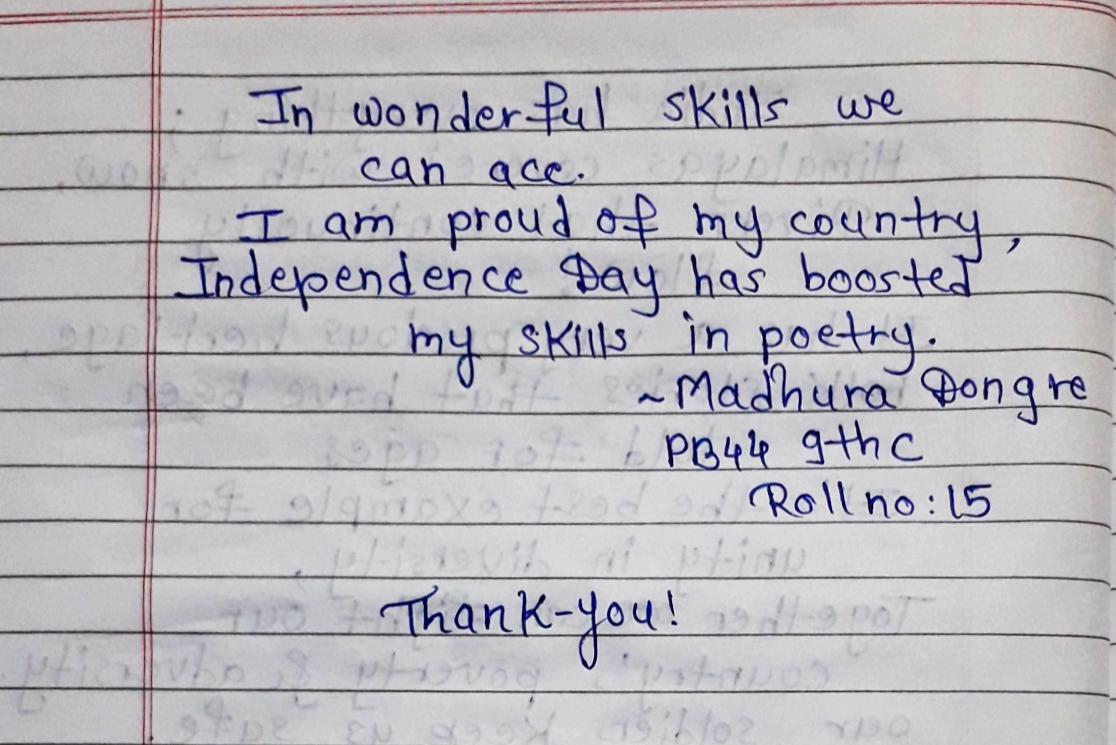 In wonderful skills we
can ace.
I am proud of my country,
Independence Day has boosted
my skills in poetry.
~Madhura Dongre
PB44 9th C
Roll no: 15
Thank-you!